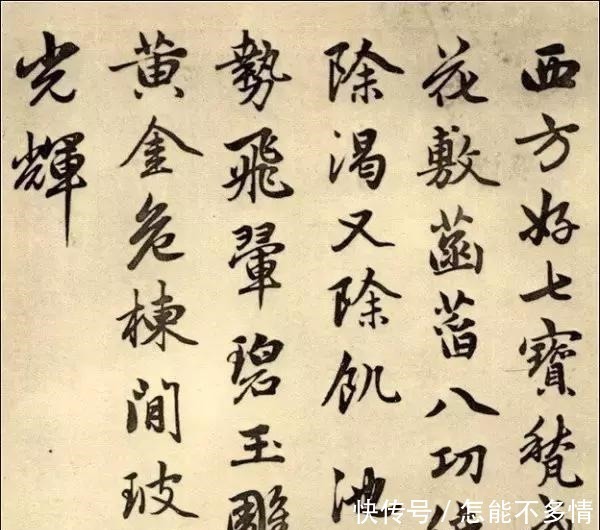 西方好七寶甃
花敷菡萏八功
除渴又除飢 池
勢飛翬碧玉雕
黃金危棟間玻
光輝
快传号/怎能不多情